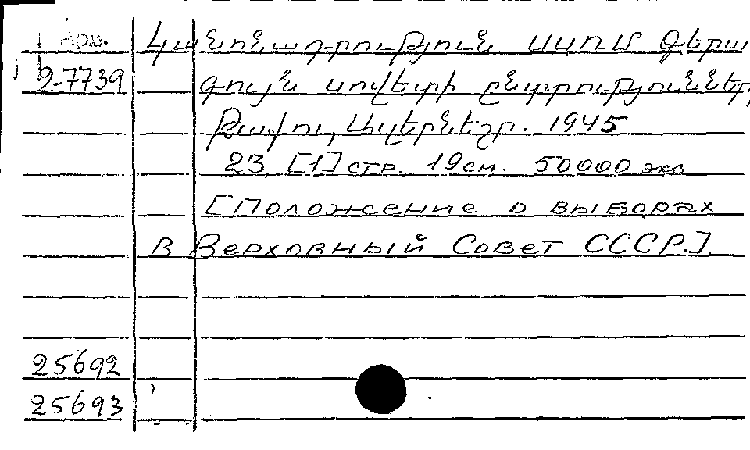 Арм. Կանոնադրություն ՍՍՌՄ Գերա
2-7739 գույն սովետի ընտրությունների,
Բաքու, Ազերնեշր. 1945
23 [1] стр. 19 см. 50000 экз
[Положение о выборах
в Верховный Совет СССР.].
25692
25693